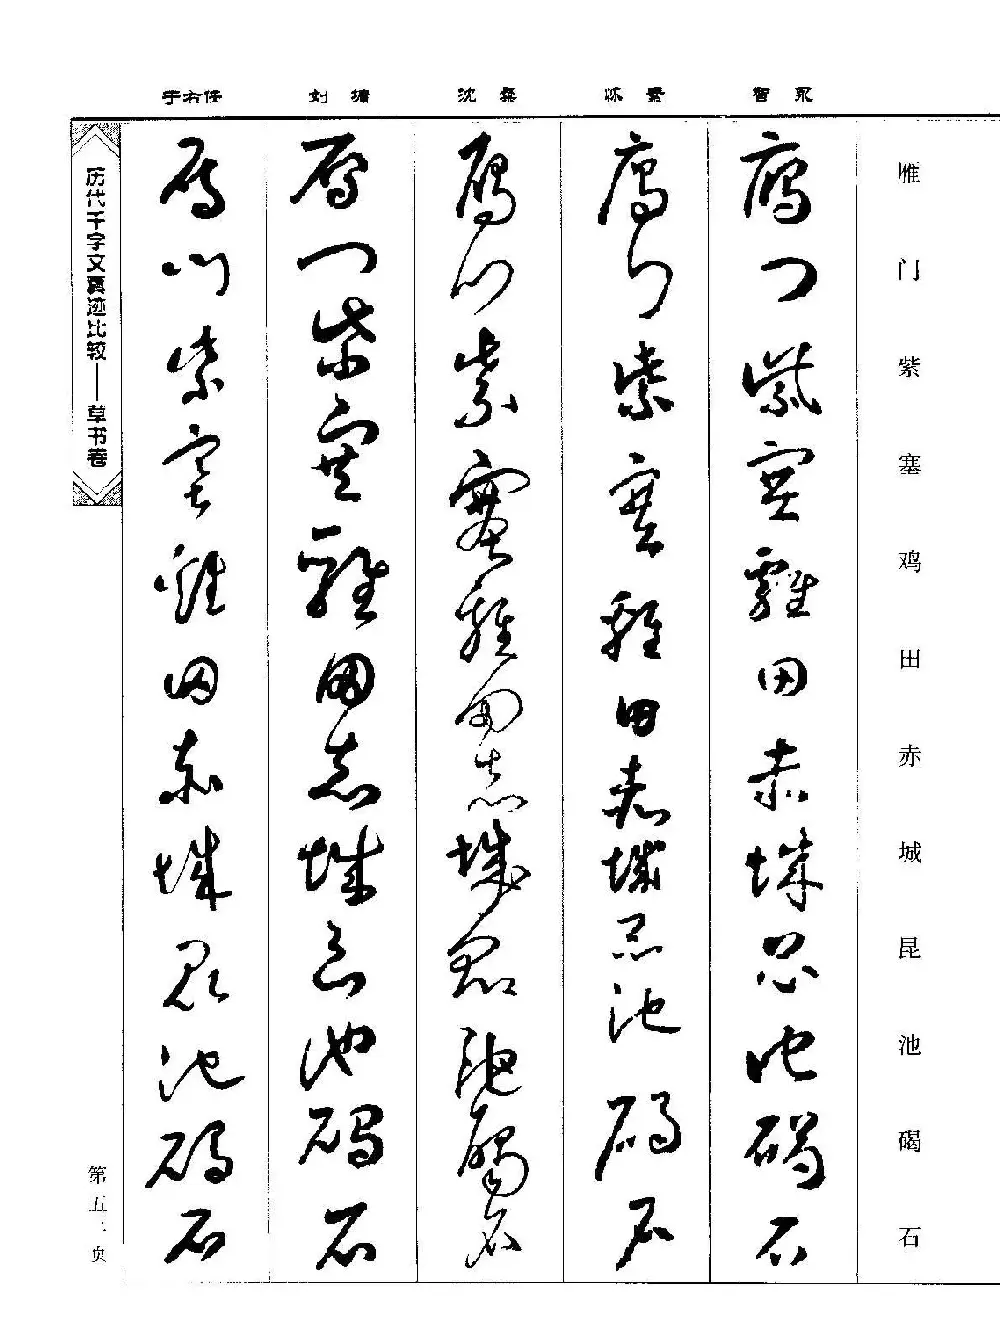 雁门紫塞鸡田赤城昆池碣石
智永
雁門紫塞雞田赤城昆池碣石
怀素
雁門紫塞雞田赤城昆池碣石
沈粲
雁門紫塞雞田赤城昆池碣石
刘墉
雁門紫塞雞田赤城昆池碣石
于右任
雁門紫塞雞田赤城昆池碣石
历代千字文真迹比较——草书卷
第五 页